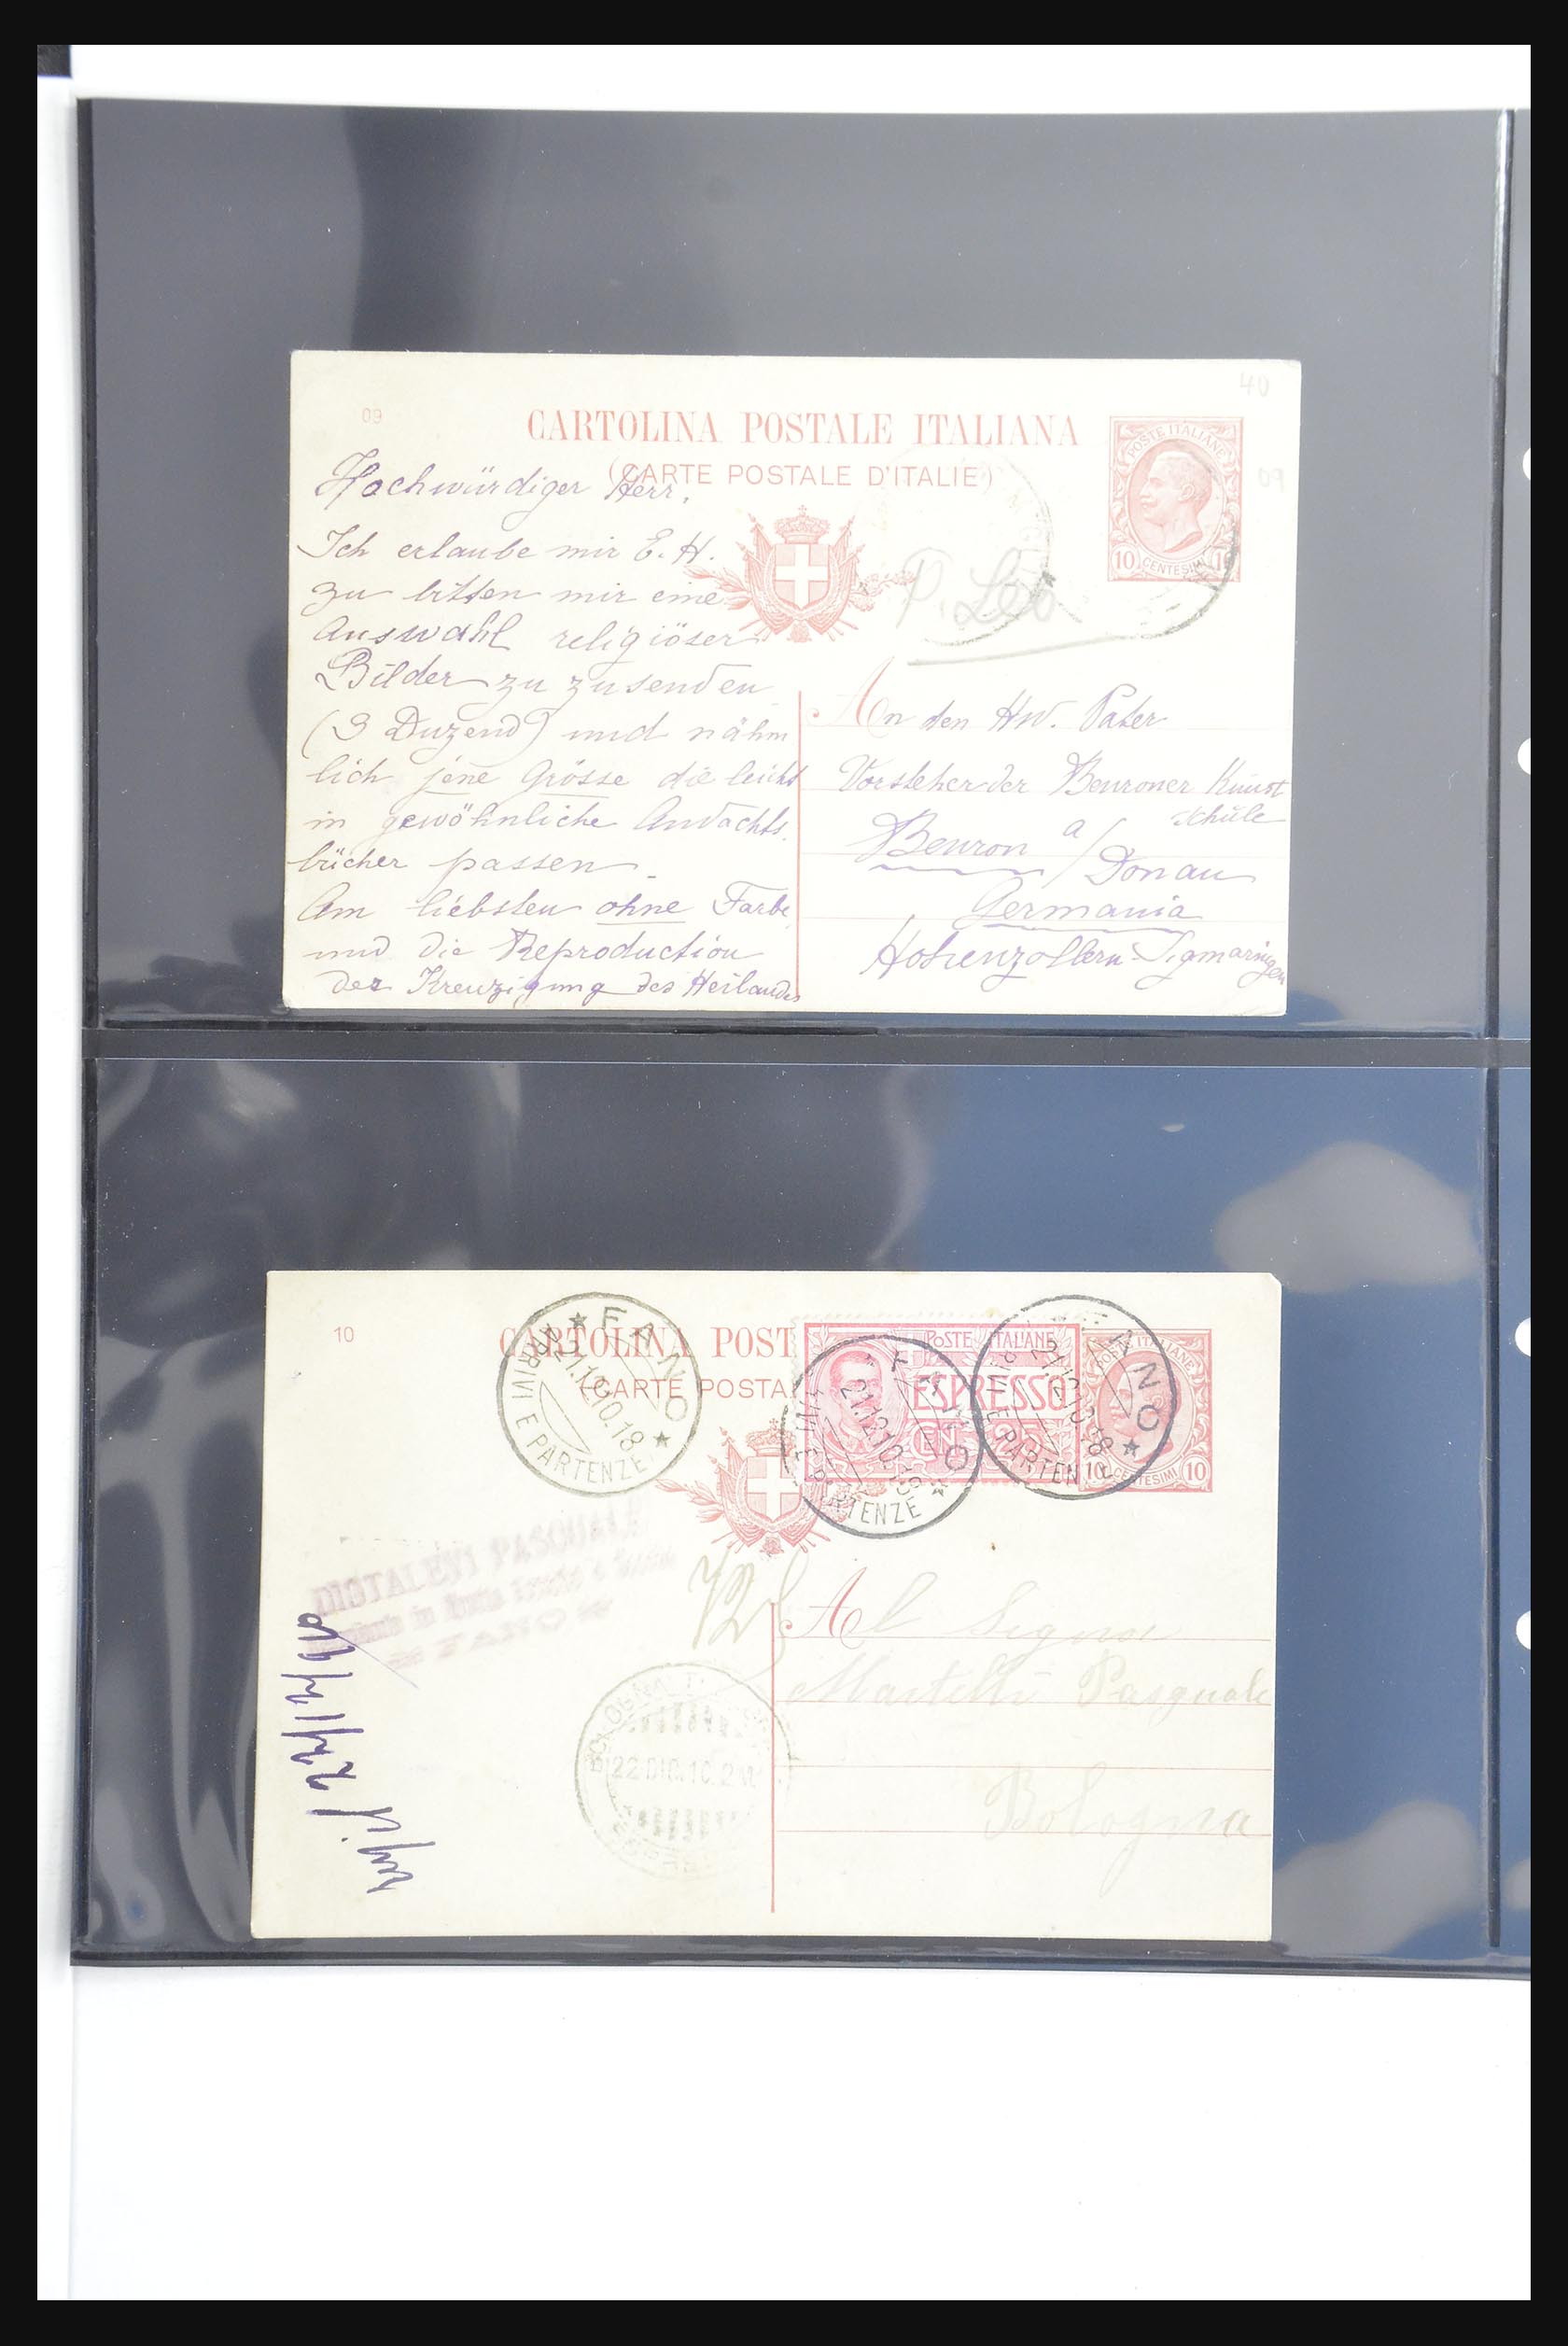 40
09
CARTOLINA POSTALE ITALIANA
(CARTE POSTALE D'ITALIE)
POSTE ITALIANE
10 CENTESIMI 10
09
P. Leo
Hochwürdiger Herr,
Ich erlaube mir E. H.
zu bitten mir eine
Auswahl religiöser
Bilder zu zusenden
(3 Duzend) und nähm
lich jene Grösse die leicht
in gewöhnliche Andachts.
bücher passen.
Am liebsten ohne Farbe
und die Reproduction
der Kreuzigung des Heilandes
An den HW. Pater
Vorsteher der Beuroner Kunst
schule
Beuron a/Donau
Germania
Hohenzollern-Sigmaringen
10
CARTOLINA POST
(CARTE POSTA
FANO
21.12.10.18
ARRIVI E PARTENZE
POSTE ITALIANE
ESPRESSO
CEN. 25
FANO
21.12.10.18
ARRIVI E PARTENZE
FANO
21.12.10.18
ARRIVI E PARTENZE
POSTE ITALIANE
10 CENTESIMI 10
PASQUALE
FANO
Al Signor
Martelli Pasquale
Bologna
BOLOGNA
22 DIC. 10